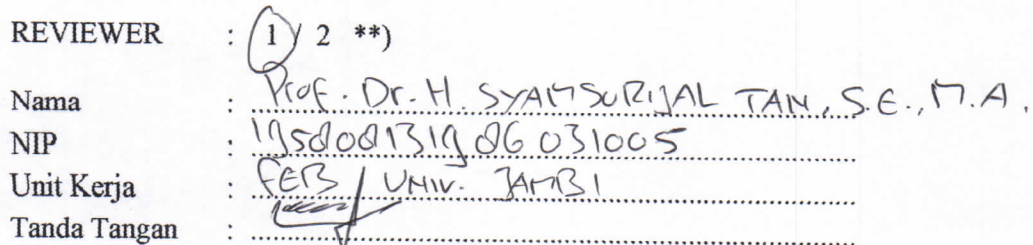 REVIEWER : 1 / 2 **)
Nama : Prof. Dr. H. SYAMSURIJAL TAN, S.E., M.A.
NIP : 195808131986031005
Unit Kerja : FEB / UNIV. JAMBI
Tanda Tangan :